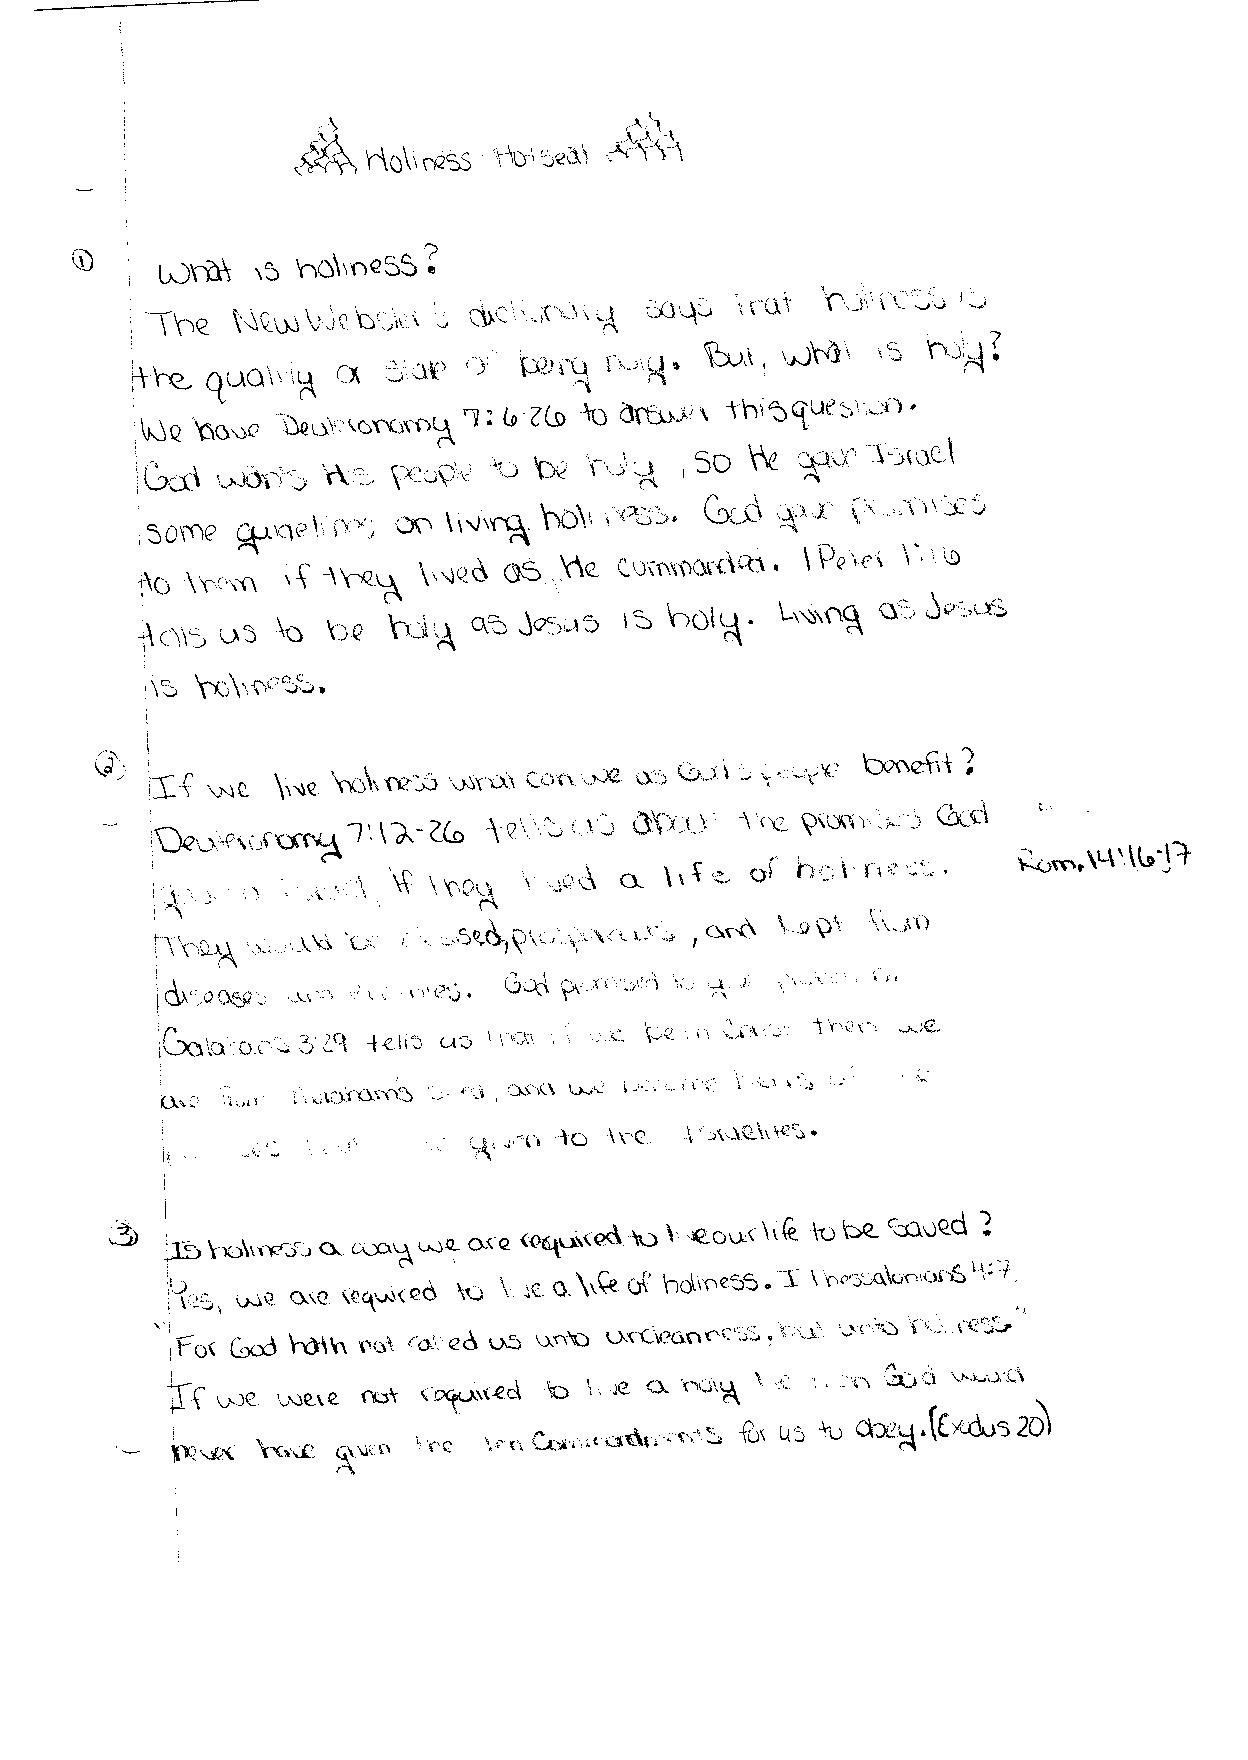 Holiness Hotseat
① What is holiness?
The New Webster's dictionary says that holiness is
the quality or state of being holy. But, what is holy?
We have Deuteronomy 7:6-26 to answer this question.
God wants His people to be holy, so He gave Israel
some guidelines on living holiness. God gave promises
to them if they lived as He commanded. 1 Peter 1:16
tells us to be holy as Jesus is holy. Living as Jesus
is holiness.
② If we live holiness what can we as God's people benefit?
Deuteronomy 7:12-26 tells us about the promises God
Rom. 14:16-17
if they lived a life of holiness.
They would be prosperous, and kept from
diseases and enemies. God promised to give
Galatians 3:29 tells us that if we be in Christ then we
are Abraham's seed, and we become heirs of
given to the Israelites.
③ Is holiness a way we are required to live our life to be saved?
Yes, we are required to live a life of holiness. I Thessalonians 4:7
"For God hath not called us unto uncleanness, but unto holiness"
If we were not required to live a holy life then God would
never have given the ten Commandments for us to obey. (Exodus 20)